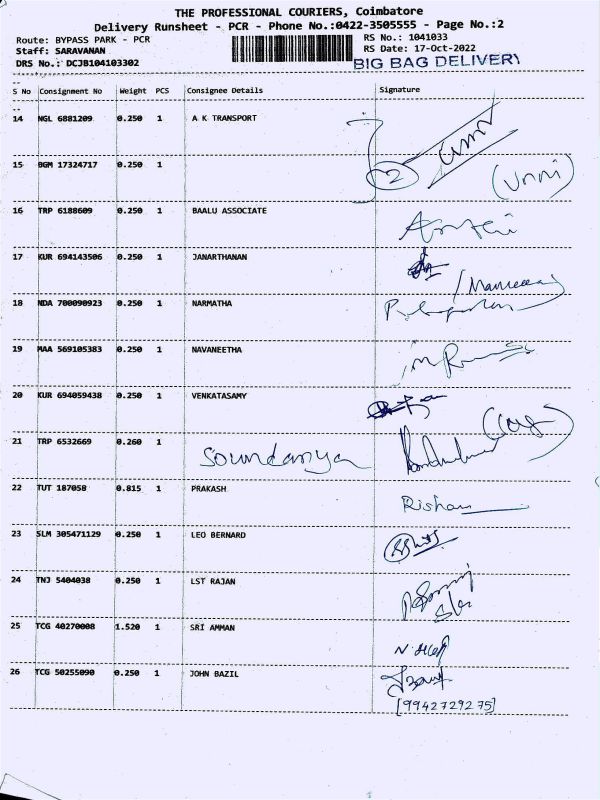 THE PROFESSIONAL COURIERS, Coimbatore
Delivery Runsheet - PCR - Phone No.:0422-3505555 - Page No.:2
Route: BYPASS PARK - PCR RS No.: 1041033
Staff: SARAVANAN RS Date: 17-Oct-2022
DRS No.: DCJB104103302 BIG BAG DELIVERY
S No Consignment No Weight PCS Consignee Details Signature
14 NGL 6881209 0.250 1 A K TRANSPORT
15 BGM 17324717 0.250 1 2 (Unni)
16 TRP 6188609 0.250 1 BAALU ASSOCIATE
17 KUR 694143506 0.250 1 JANARTHANAN
18 NDA 700090923 0.250 1 NARMATHA
19 MAA 569105383 0.250 1 NAVANEETHA
20 KUR 694059438 0.250 1 VENKATASAMY
21 TRP 6532669 0.260 1 Soundarya
22 TUT 187058 0.815 1 PRAKASH
23 SLM 305471129 0.250 1 LEO BERNARD
24 TNJ 5404038 0.250 1 LST RAJAN
25 TCG 40270008 1.520 1 SRI AMMAN
26 TCG 50255090 0.250 1 JOHN BAZIL
[9942729275]